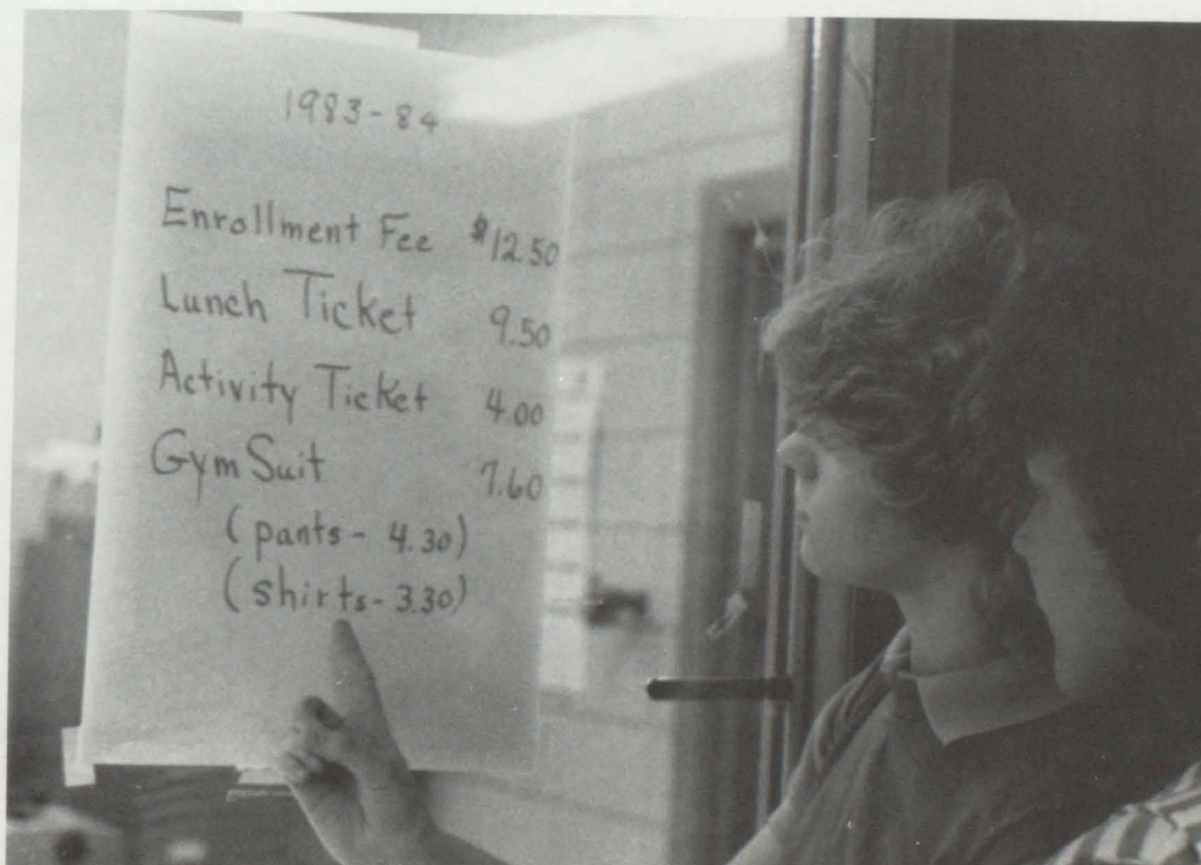 1983-84
Enrollment Fee $12.50
Lunch Ticket 9.50
Activity Ticket 4.00
Gym Suit 7.60
(pants - 4.30)
(shirts - 3.30)